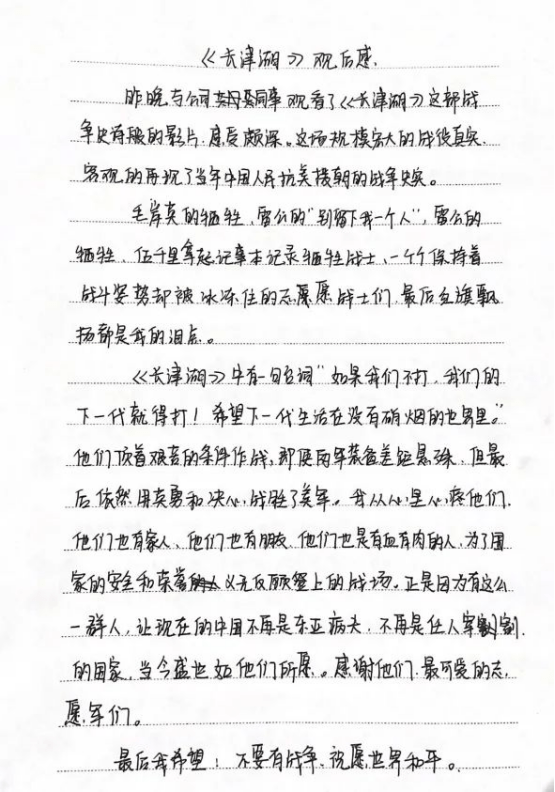 《长津湖》观后感.
昨晚与公司共同事观看了《长津湖》这部战
争史有般的影片,感受颇深。这场规模宏大的战役真实,
客观的再现了当年中国人民抗美援朝的战争史实。
毛岸英的牺牲,雷公的"别留下我一个人",雷公的
牺牲、伍千里拿起记事本记录牺牲战士、一个个保持着
战斗姿势却被冰冻住的志愿愿战士们,最后红旗飘
扬都是我的泪点。
《长津湖》中有一句台词"如果我们不打,我们的
下一代就得打!希望下一代生活在没有硝烟的世界里。"
他们顶着艰苦的条件作战,即便两军装备差距悬殊,但最
后依然用英勇和决心,战胜了美军。我从心里心疼他们,
他们也有家人、他们也有朋友,他们也是有血有肉的人,为了国
家的安全和荣誉义无反顾踏上的战场。正是因为有这么
一群人,让现在的中国不再是东亚病夫,不再是任人宰割
的国家,当今盛世如他们所愿。感谢他们,最可爱的志
愿军们。
最后我希望:不要有战争,祝愿世界和平。